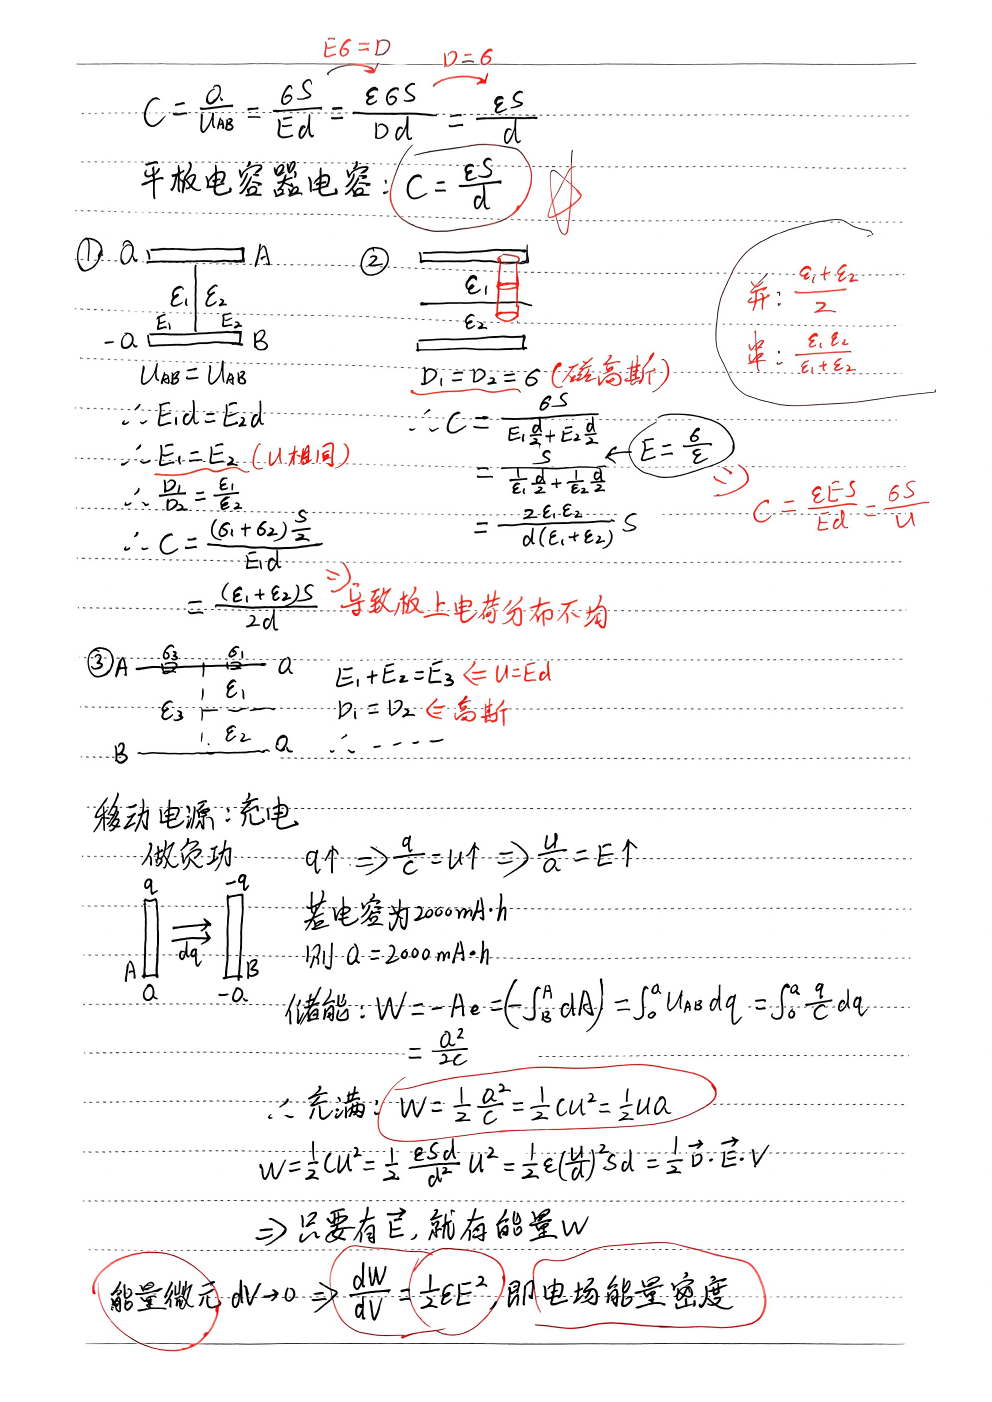 Eϭ=D D=ϭ
C = Q/U_AB = ϭS/Ed = εϭS/Dd = εS/d
平板电容器电容: C = εS/d
① Q A
ε₁ ε₂
E₁ E₂
-Q B
U_AB = U_AB
∴ E₁d = E₂d
∴ E₁ = E₂ (U相同)
∴ D₁/D₂ = ε₁/ε₂
∴ C = (ϭ₁+ϭ₂)S/2 / E₁d
= (ε₁+ε₂)S / 2d
⇒ 导致板上电荷分布不均
②
ε₁
ε₂
D₁ = D₂ = ϭ (磁高斯)
∴ C = ϭS / (E₁ d/2 + E₂ d/2)
= S / (1/ε₁ d/2 + 1/ε₂ d/2) ← E = ϭ/ε
= 2ε₁ε₂ / d(ε₁+ε₂) S
⇒ C = εES/Ed = ϭS/U
并: (ε₁+ε₂)/2
串: ε₁ε₂/(ε₁+ε₂)
③ A ϭ₃ ϭ₁ Q
ε₃ ε₁
ε₂
B Q
E₁+E₂=E₃ ⇐ U=Ed
D₁ = D₂ ⇐ 高斯
∴ ----
移动电源: 充电
做负功 q↑ ⇒ q/C = U↑ ⇒ U/d = E↑
q -q
dq
A B
Q -Q
若电容为2000mA·h
则 Q = 2000mA·h
储能: W = -Ae = (-∫_B^A dA) = ∫₀^Q U_AB dq = ∫₀^Q q/C dq
= Q²/2C
∴ 充满: W = 1/2 Q²/C = 1/2 CU² = 1/2 UQ
W = 1/2 CU² = 1/2 εSd/d² U² = 1/2 ε(U/d)² Sd = 1/2 D⃗·E⃗·V
⇒ 只要有E⃗, 就有能量W
能量微元 dV→0 ⇒ dW/dV = 1/2 εE², 即电场能量密度